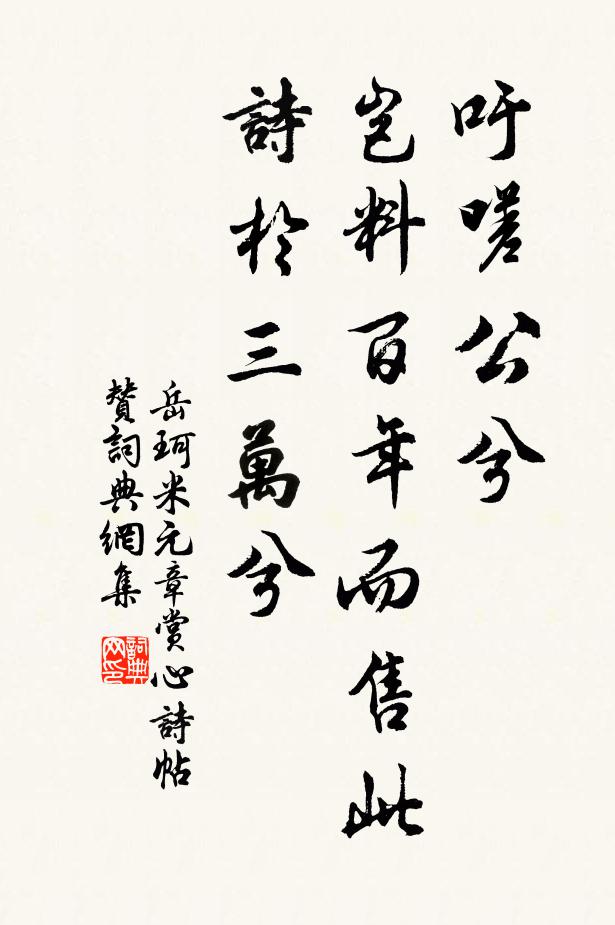 吁嗟公兮
豈料百年而售此
詩於三萬兮
岳珂米元章賞心詩帖
贊詞典網集
詞典網印